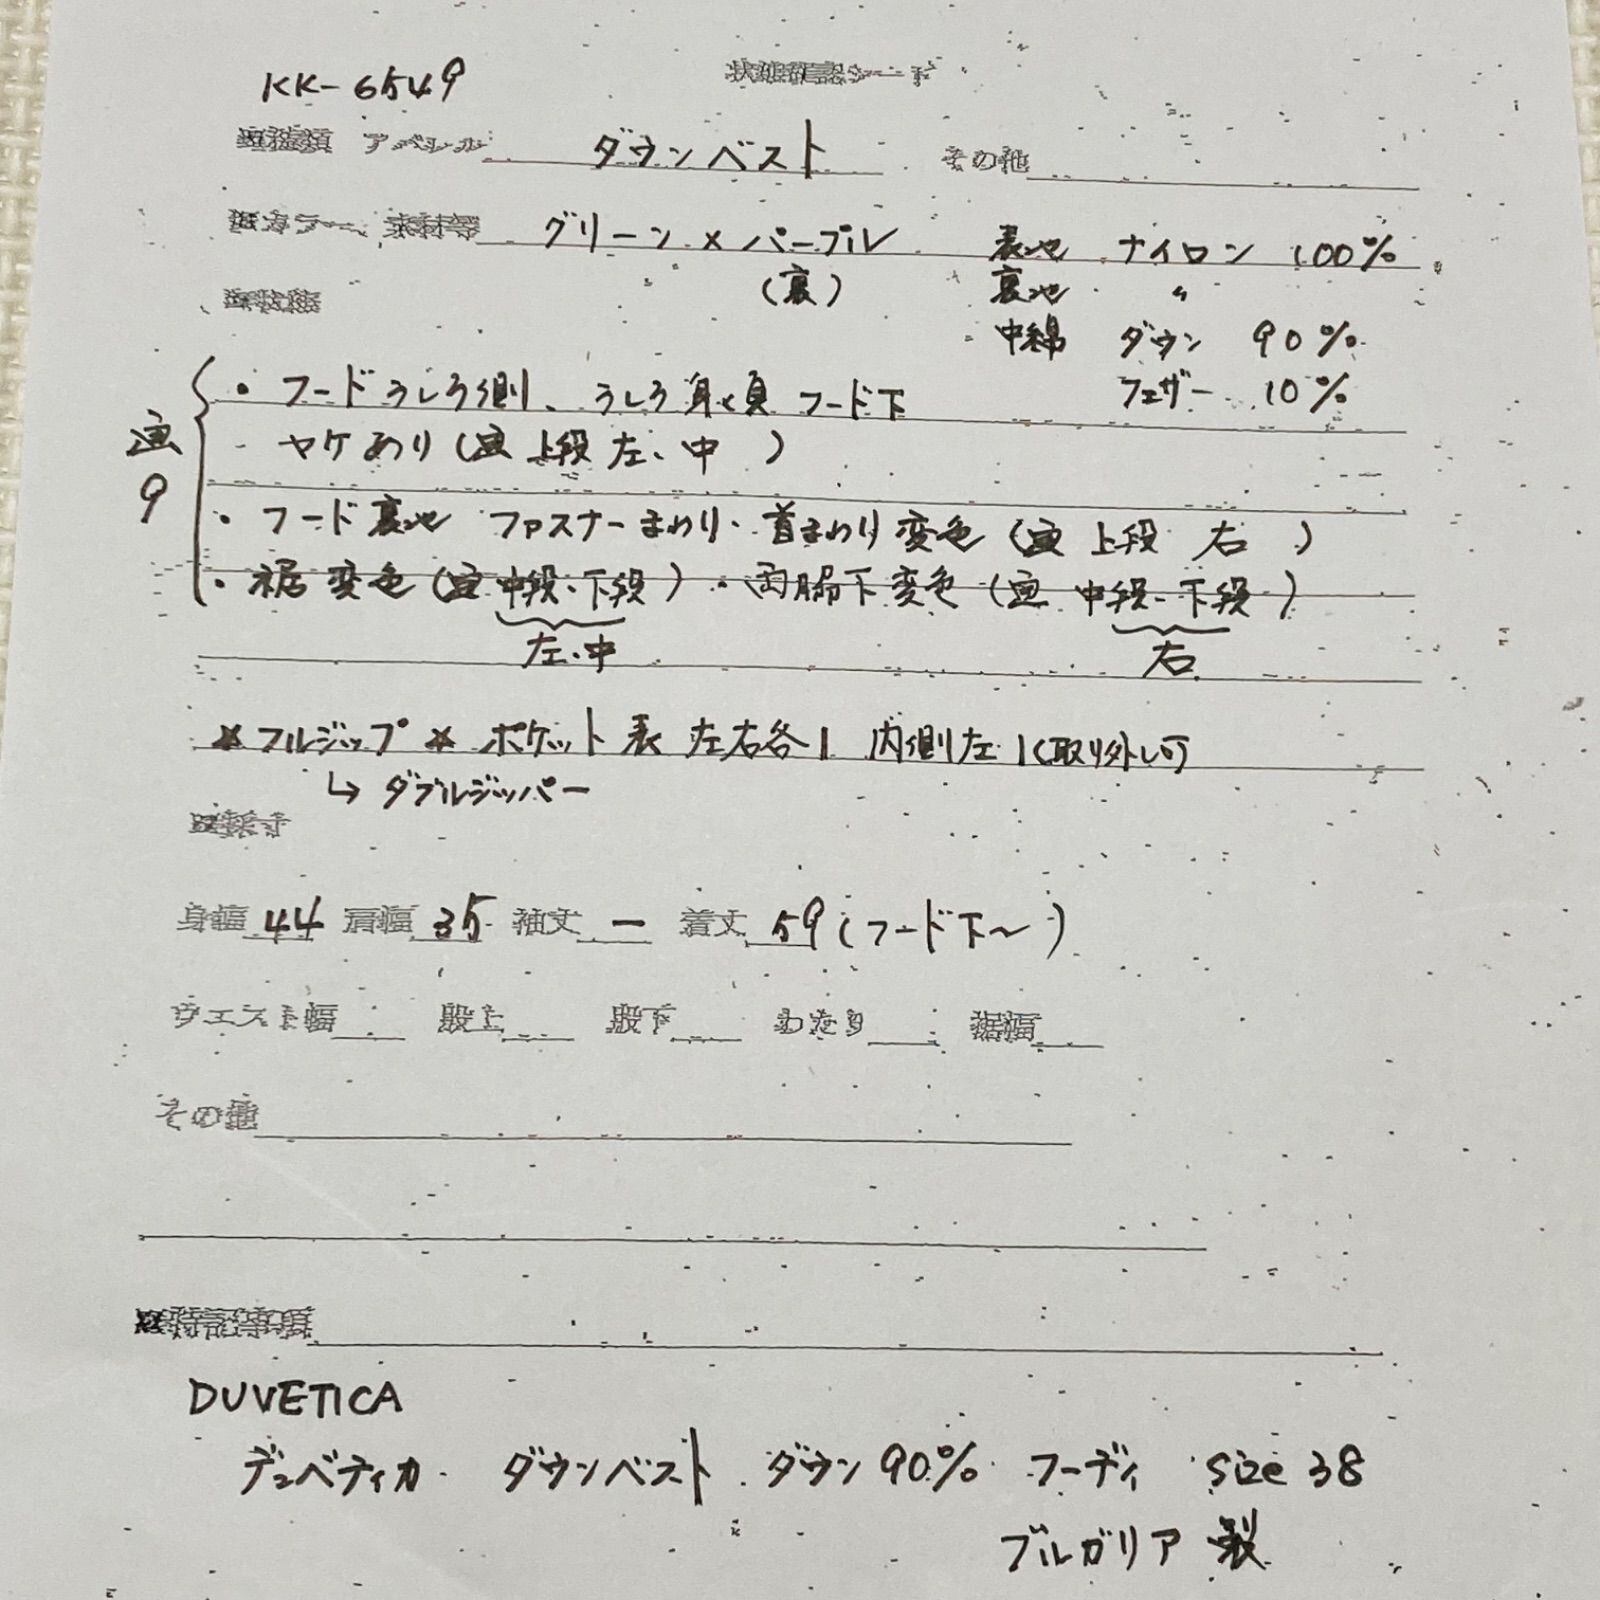 KK-6549 状態確認シート
■種類 アパレル ダウンベスト その他
■カラー、素材等 グリーン×パープル 表地 ナイロン 100%
(裏) 裏地 〃
■状態 中綿 ダウン 90%
フェザー 10%
画9
・フードうしろ側、うしろ身頃 フード下
ヤケあり(画 上段 左、中 )
・フード裏地 ファスナーまわり・首まわり変色(画 上段 右 )
・裾変色(画 中段・下段)・両脇下変色(画 中段・下段)
左、中 右
*フルジップ * ポケット 表 左右各1 内側左1(取り外し可
↳ ダブルジッパー
■採寸
身幅 44 肩幅 35 袖丈 ー 着丈 59(フード下〜)
ウエスト幅 股上 股下 わたり 裾幅
その他
■特記事項
DUVETICA
デュベティカ ダウンベスト ダウン90% フーディ size 38
ブルガリア製